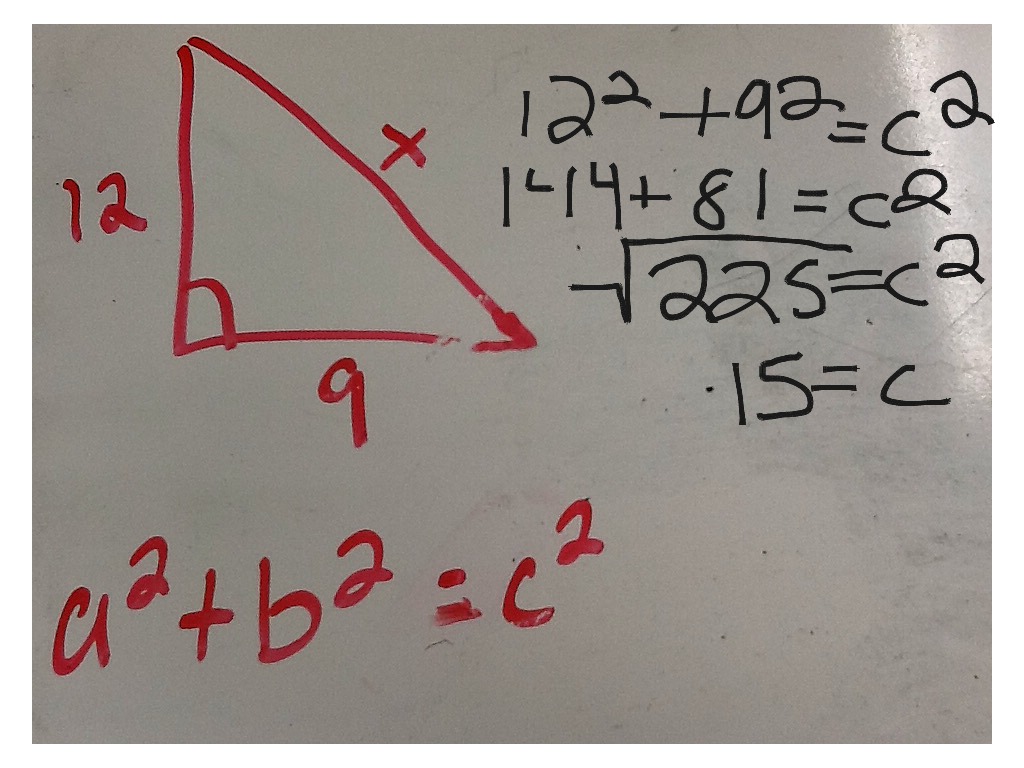 x
12
9
12² + 9² = c²
144 + 81 = c²
√225 = c²
15 = c
a² + b² = c²